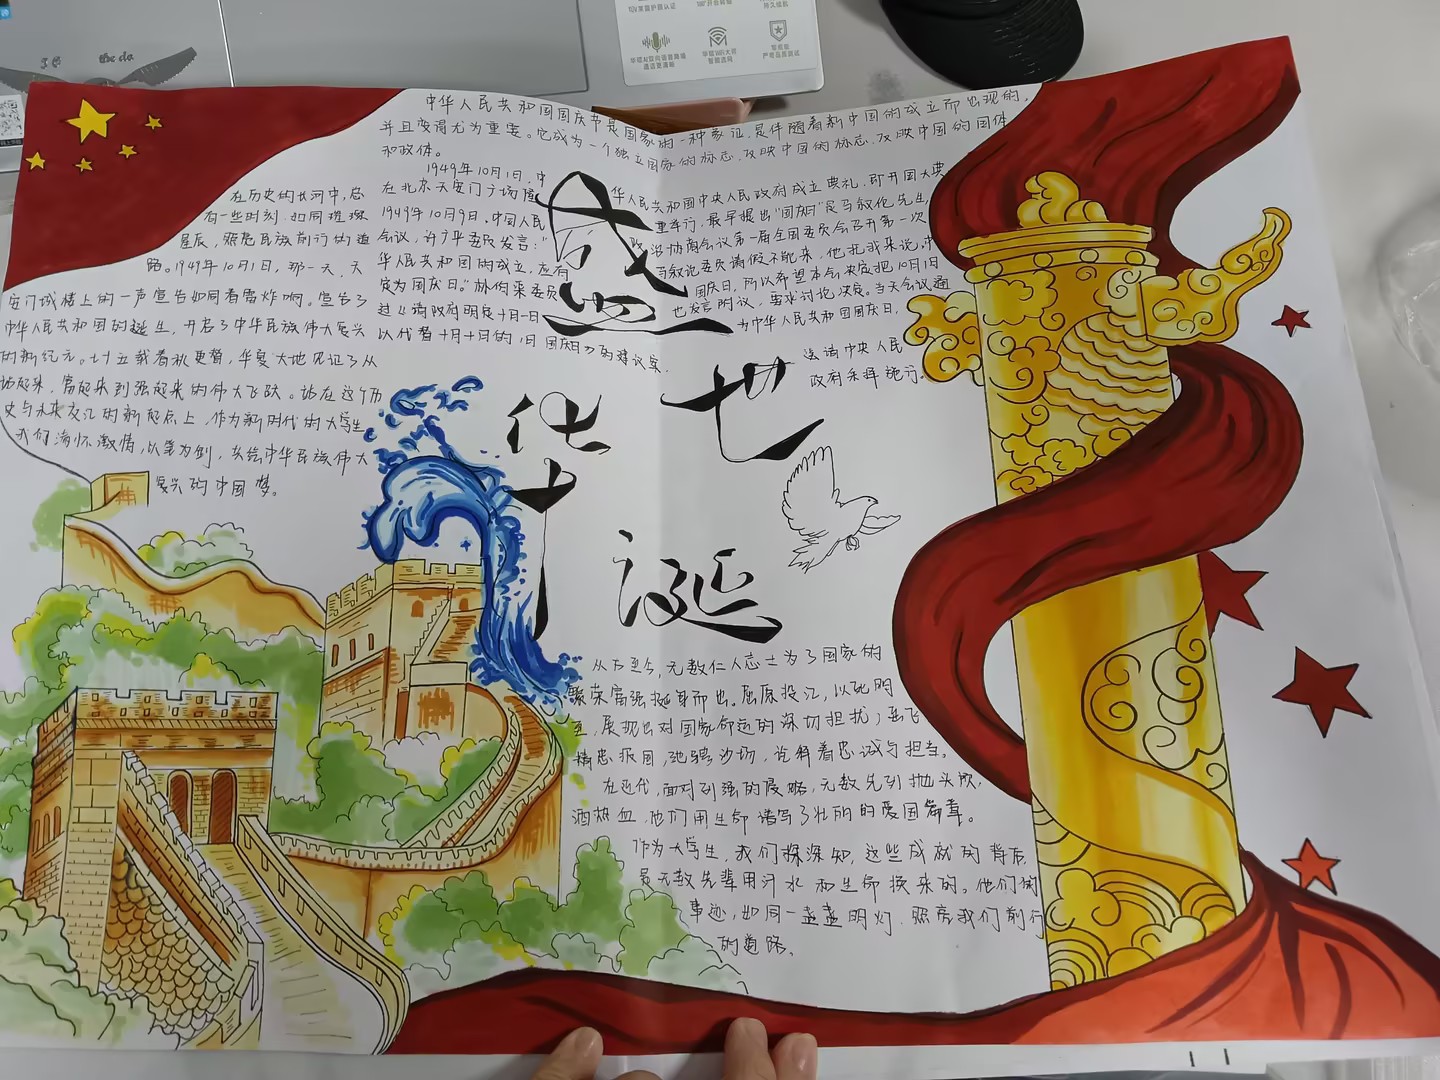 中华人民共和国国庆节是国家的一种象征,是伴随着新中国的成立而出现的,
并且变得尤为重要。它成为一个独立国家的标志,反映中国的标志,反映中国的国体
和政体。
1949年10月1日,中华人民共和国中央人民政府成立典礼,即开国大典
在北京天安门广场隆重举行。最早提出"国庆日"是马叙伦先生,
1949年10月9日,中国人民政治协商会议第一届全国委员会召开第一次
会议,许广平委员发言:"马叙伦委员请假不能来,他托我来说,中
华人民共和国的成立,应有国庆日,所以希望本会决定把10月1日
定为国庆日。"林伯渠委员也发言附议,要求讨论决定。当天会议通
过《请政府明定十月一日为中华人民共和国国庆日,
以代替十月十日的旧国庆日》的建议案,
送请中央人民
政府采择施行。
在历史的长河中,总
有一些时刻,如同璀璨
星辰,照亮民族前行的道
路。1949年10月1日,那一天,天
安门城楼上的一声宣告如同春雷炸响。宣告了
中华人民共和国的诞生,开启了中华民族伟大复兴
的新纪元。七十五载春秋更替,华夏大地见证了从
站起来,富起来到强起来的伟大飞跃。站在这个历
史与未来交汇的新起点上,作为新时代的大学生
我们满怀激情,以笔为剑,共绘中华民族伟大
复兴的中国梦。
盛
世
华
诞
从古至今,无数仁人志士为了国家的
繁荣富强挺身而出。屈原投江,以死明
志,展现出对国家命运的深切担扰;岳飞
精忠报国,驰骋沙场,诠释着忠诚与担当。
在近代,面对列强的侵略,无数先烈抛头颅,
洒热血,他们用生命谱写了壮丽的爱国篇章。
作为大学生,我们深深知,这些成就的背后
是无数先辈用汗水和生命换来的。他们的
事迹,如同一盏盏明灯,照亮我们前行
的道路。